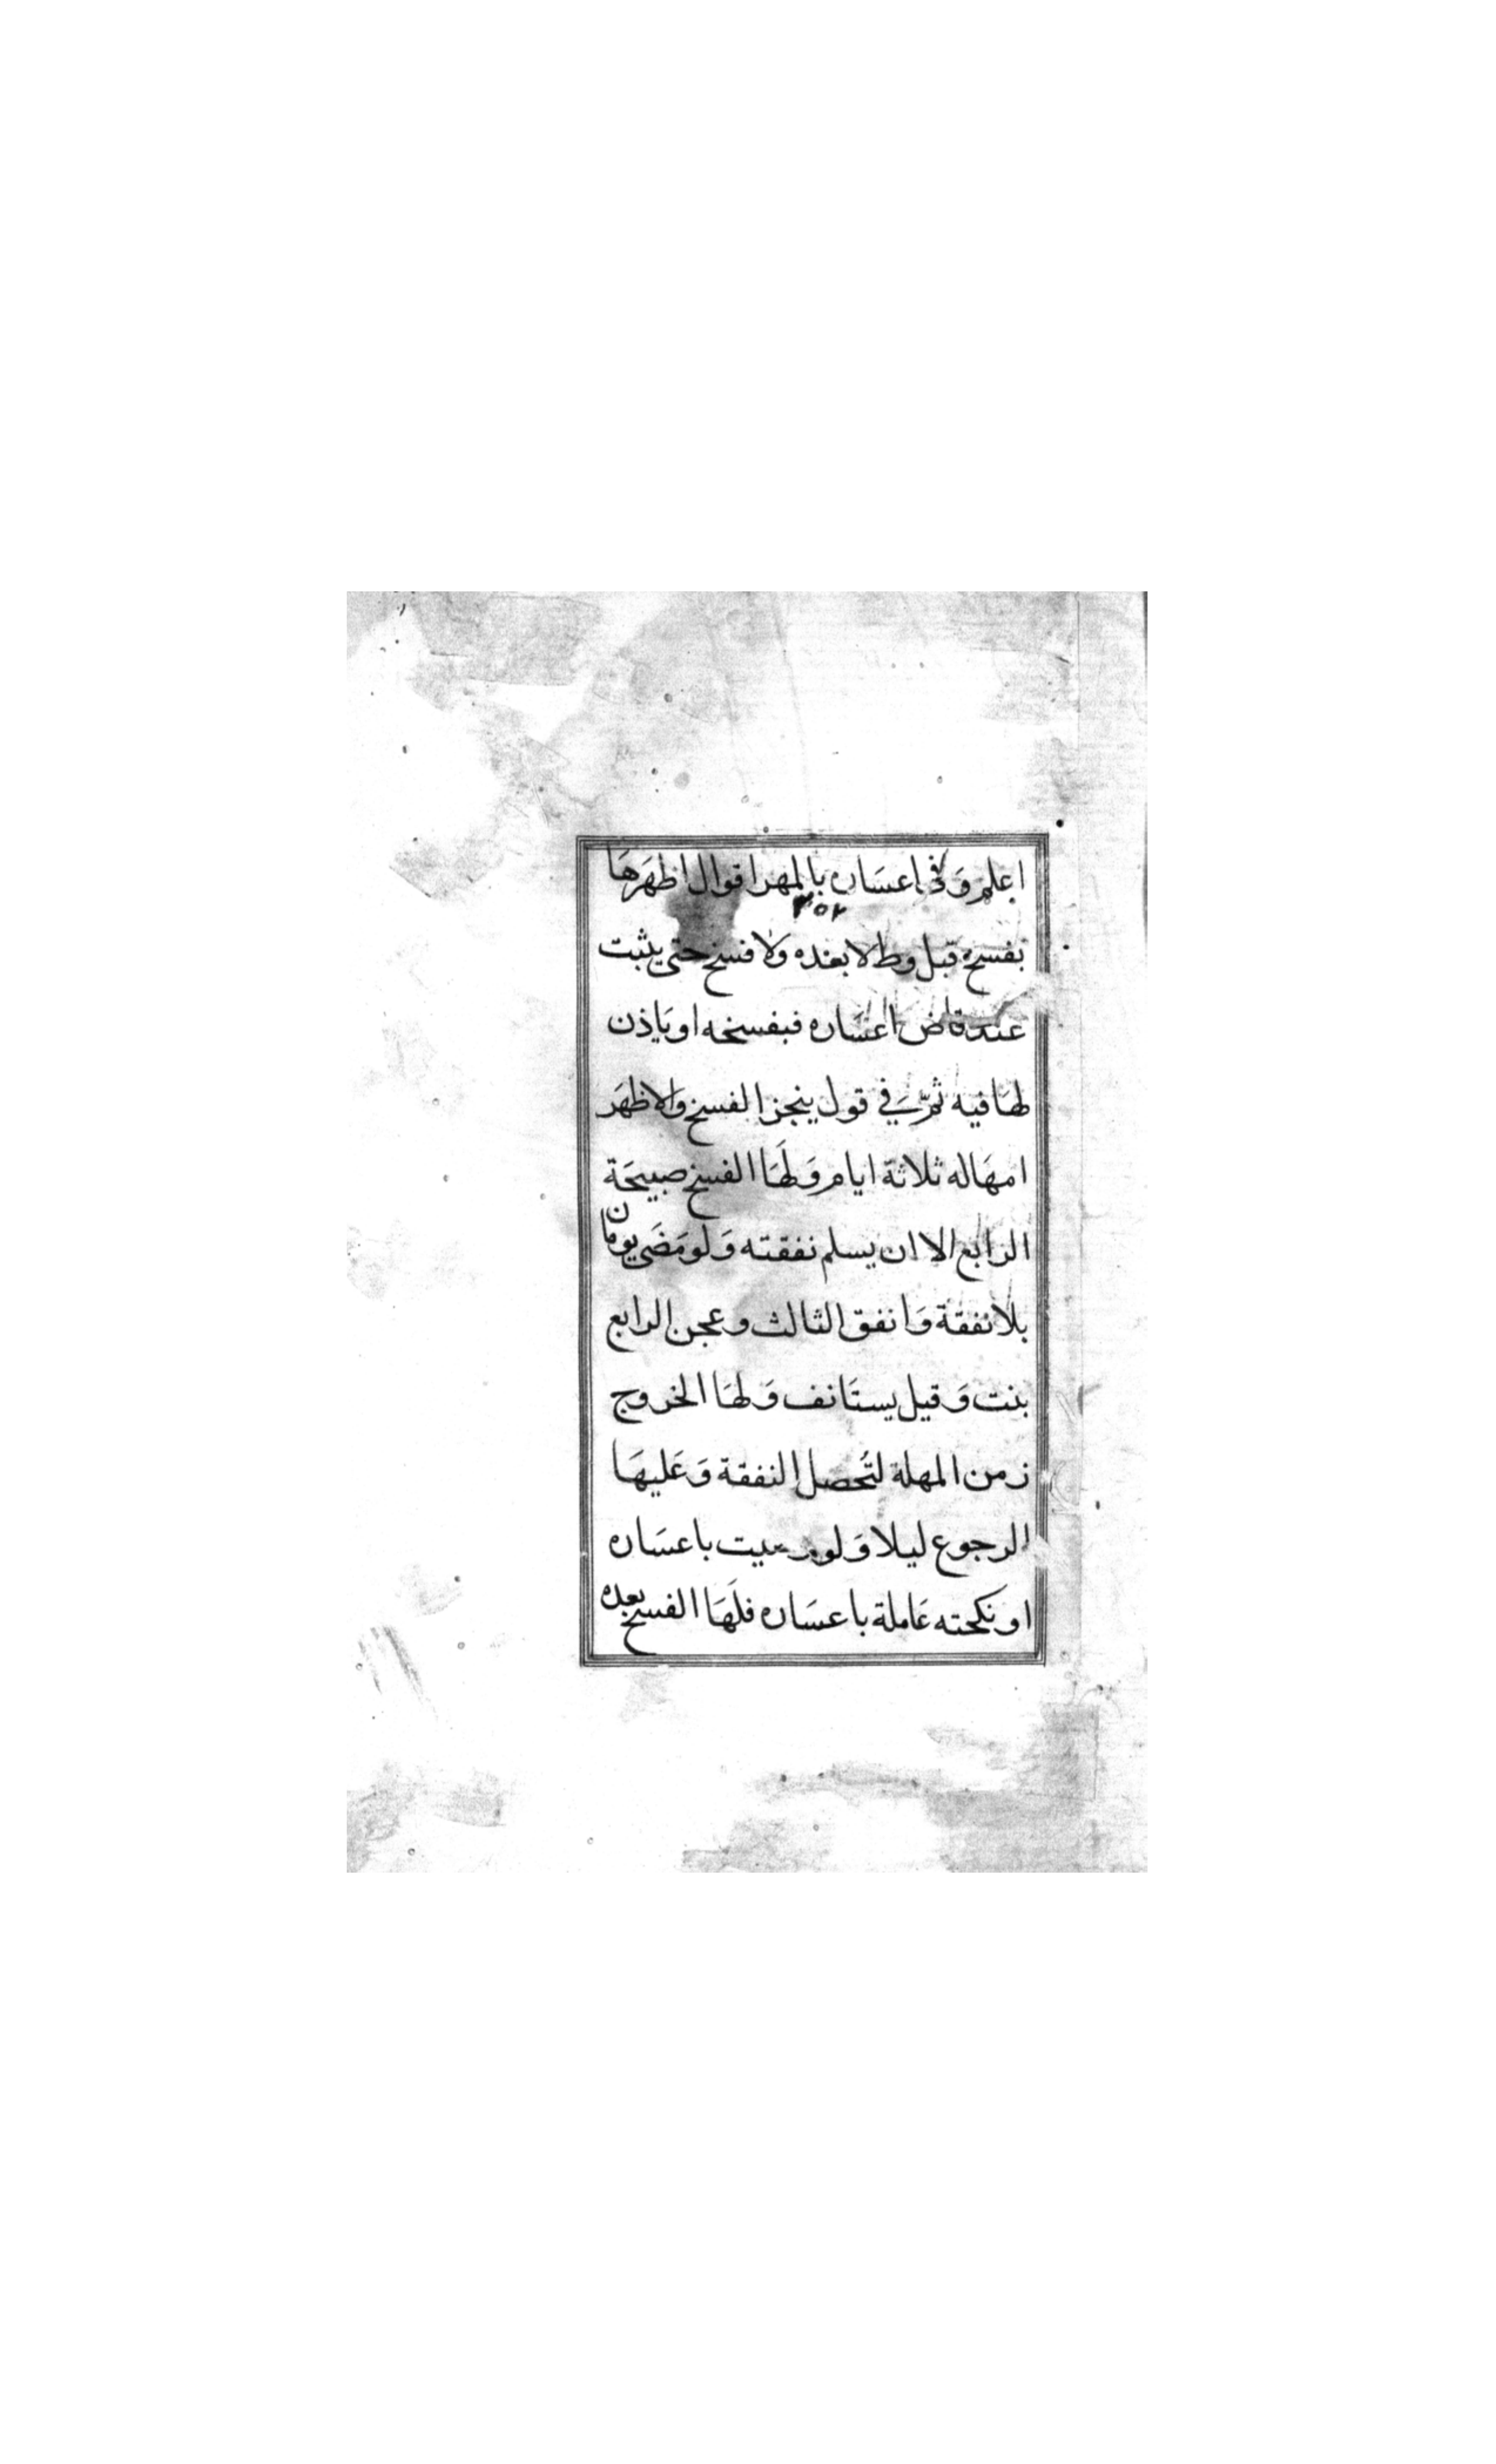 اعلم وَفي اعسَاره بالمهر اقوال اظهَرهَا
٣٥٢
بفسخ قبل وطء لا بعده ولا فسخ حتى يثبت
عند قاض اعسَاره فيفسخه او يَاذن
لهَا فيه ثمّ في قول ينجز الفسخ والاظهَر
امهَاله ثلاثة ايام وَلهَا الفسخ صبيحَة
الرابع الا ان يسلم نفقته وَلو مَضَى يومان
بلا نفقة وَانفق الثالث وعجز الرابع
بنت وَقيل يستَانف وَلهَا الخروج
زمن المهلة لتُحصل النفقة وَعَليهَا
الرجوع ليلا وَلو رضيت باعسَاره
او نكحته عَاملة باعسَاره فلهَا الفسخ بعده